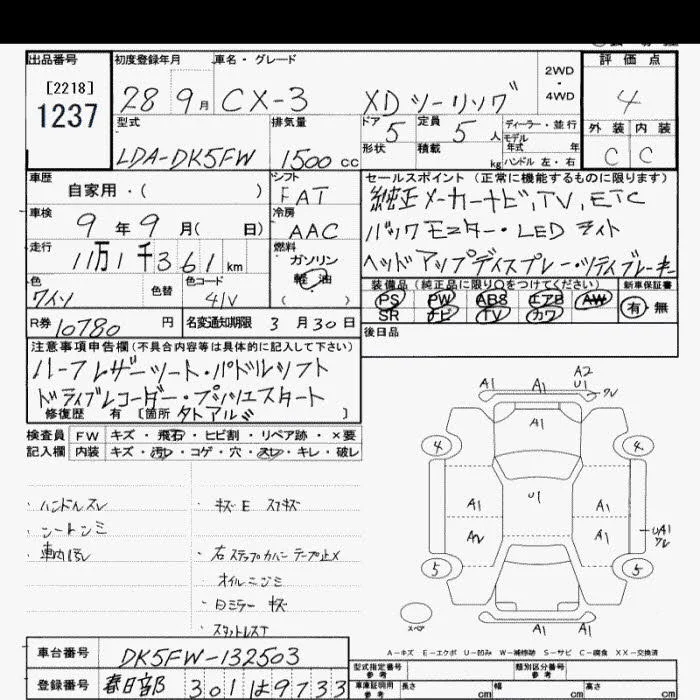 出品番号 初度登録年月 車名・グレード 2WD・4WD 評価点
[2218]
1237
28 9月 CX-3 XDツーリング 4
型式 排気量 ドア 5 定員 5人 ディーラー・並行 外装 内装
LDA-DK5FW 1500 cc 形状 積載 kg モデル年式 年 ハンドル 左・右 C C
車歴 シフト セールスポイント (正常に機能するものに限ります)
自家用・( ) FAT 純正メーカーナビ,TV,ETC
車検 冷房
9年9月( 日) AAC バックモニター・LEDライト
走行 燃料
11万1千361km ガソリン ヘッドアップディスプレー・
軽・油
色 色替 色コード ( ) 装備品 (純正品に限り○をつけてください) 新車保証書
ワイン 41V PS PW ABS エアB AW 有・無
SR ナビ TV カワ
R券 10780円 名変通知期限 3月30日 後日品
注意事項申告欄(不具合内容等は具体的に記入して下さい)
ハーフレザーシート・パドルシフト
ドライブレコーダー・プッシュスタート
修復歴 有 [箇所 ]
検査員 FW キズ・飛石・ヒビ割・リペア跡・×要
記入欄 内装 キズ・汚レ・コゲ・穴・スレ・キレ・破レ
A1 A1 A2 U1
A1
4 4
A1 U1 A1
A1 UA1
5 5
・ハンドルスレ ・キズE スリキズ
・シートシミ
・車内汚レ ・右ステップカバーテープ止メ
・オイルニジミ
・ミラーキズ
・スタットレスT
スペア
A1 A1 U1
A-キズ E-エクボ U-凹み W-補修跡 S-サビ C-腐食 XX-交換済
車台番号 DK5FW-132503 型式指定番号 参考 類別区分番号 参考
登録番号 春日部 301 は 9733 車庫証明用 参考 長さ cm 幅 cm 高さ cm